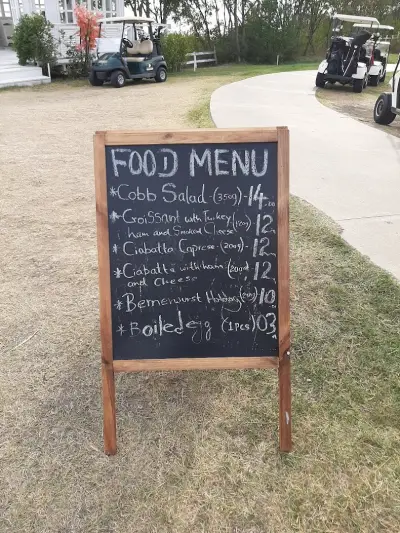 FOOD MENU
*Cobb Salad-(350g)-14.00
*Croissant with Turkey
ham and Smoked Cheese (180g) 12.00
*Ciabatta Caprese-(200g)-12.00
*Ciabatta with ham (200g)
and cheese 12.00
*Bernerwurst Hotdog 10.00
*Boiled egg (1pcs) 03.00